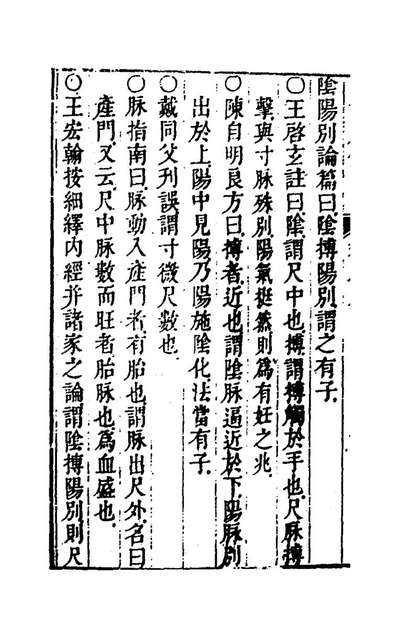 陰陽別論篇曰陰搏陽別謂之有子
〇王啓玄註曰陰謂尺中也搏謂搏觸於手也尺脉搏
擊與寸脉殊別陽氣挺然則爲有妊之兆
〇陳自明良方曰搏者近也謂陰脉逼近於下陽脉別
出於上陽中見陽乃陽施陰化法當有子
〇戴同父刋誤謂寸微尺數也
〇脉指南曰脉動入産門者有胎也謂脉出尺外名曰
産門又云尺中脉數而旺者胎脉也爲血盛也
〇王宏翰按細繹內經并諸家之論謂陰搏陽別則尺